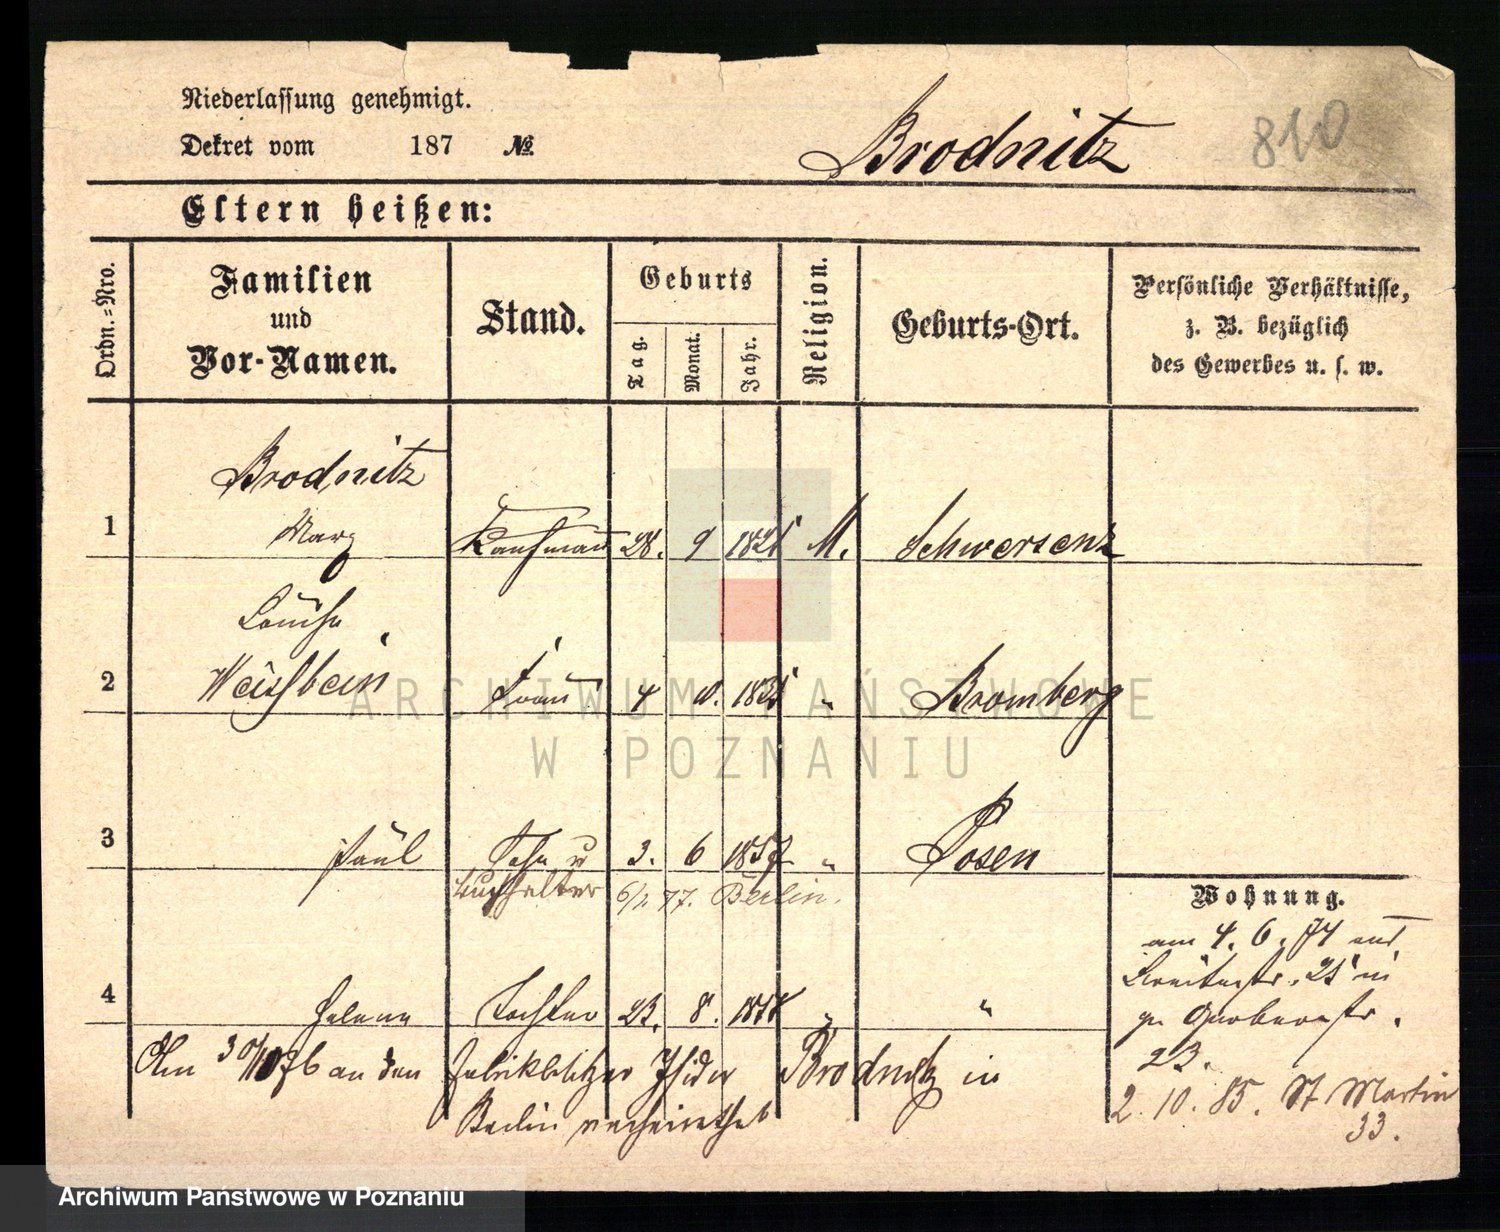 Niederlassung genehmigt.
Dekret vom 187 №
Brodnitz
810
Eltern heißen:
Ordn.=Nro.
Familien und Vor-Namen.
Stand.
Geburts
Tag. Monat. Jahr.
Religion.
Geburts-Ort.
Persönliche Verhältnisse,
z. B. bezüglich
des Gewerbes u. s. w.
Brodnitz
1 Marx Kaufmann 28. 9 1821 M. Schwersenz
Louise
2 Weissbein Frau 4 1831 " Bromberg
3 Paul Sohn u 3. 6 1857 " Posen
Buchhalter 6/1 77. Berlin.
Wohnung.
am 4. 6. 74 aus
Breitestr. 21 in
23.
2. 10. 85. St Martin
33.
4 Helene Tochter 23. 8. 1858 " "
Am 30/10 76 an den Fabrikbesitzer Isidor Brodnitz in
Berlin verheirathet
ARCHIWUM PAŃSTWOWE
W POZNANIU
Archiwum Państwowe w Poznaniu